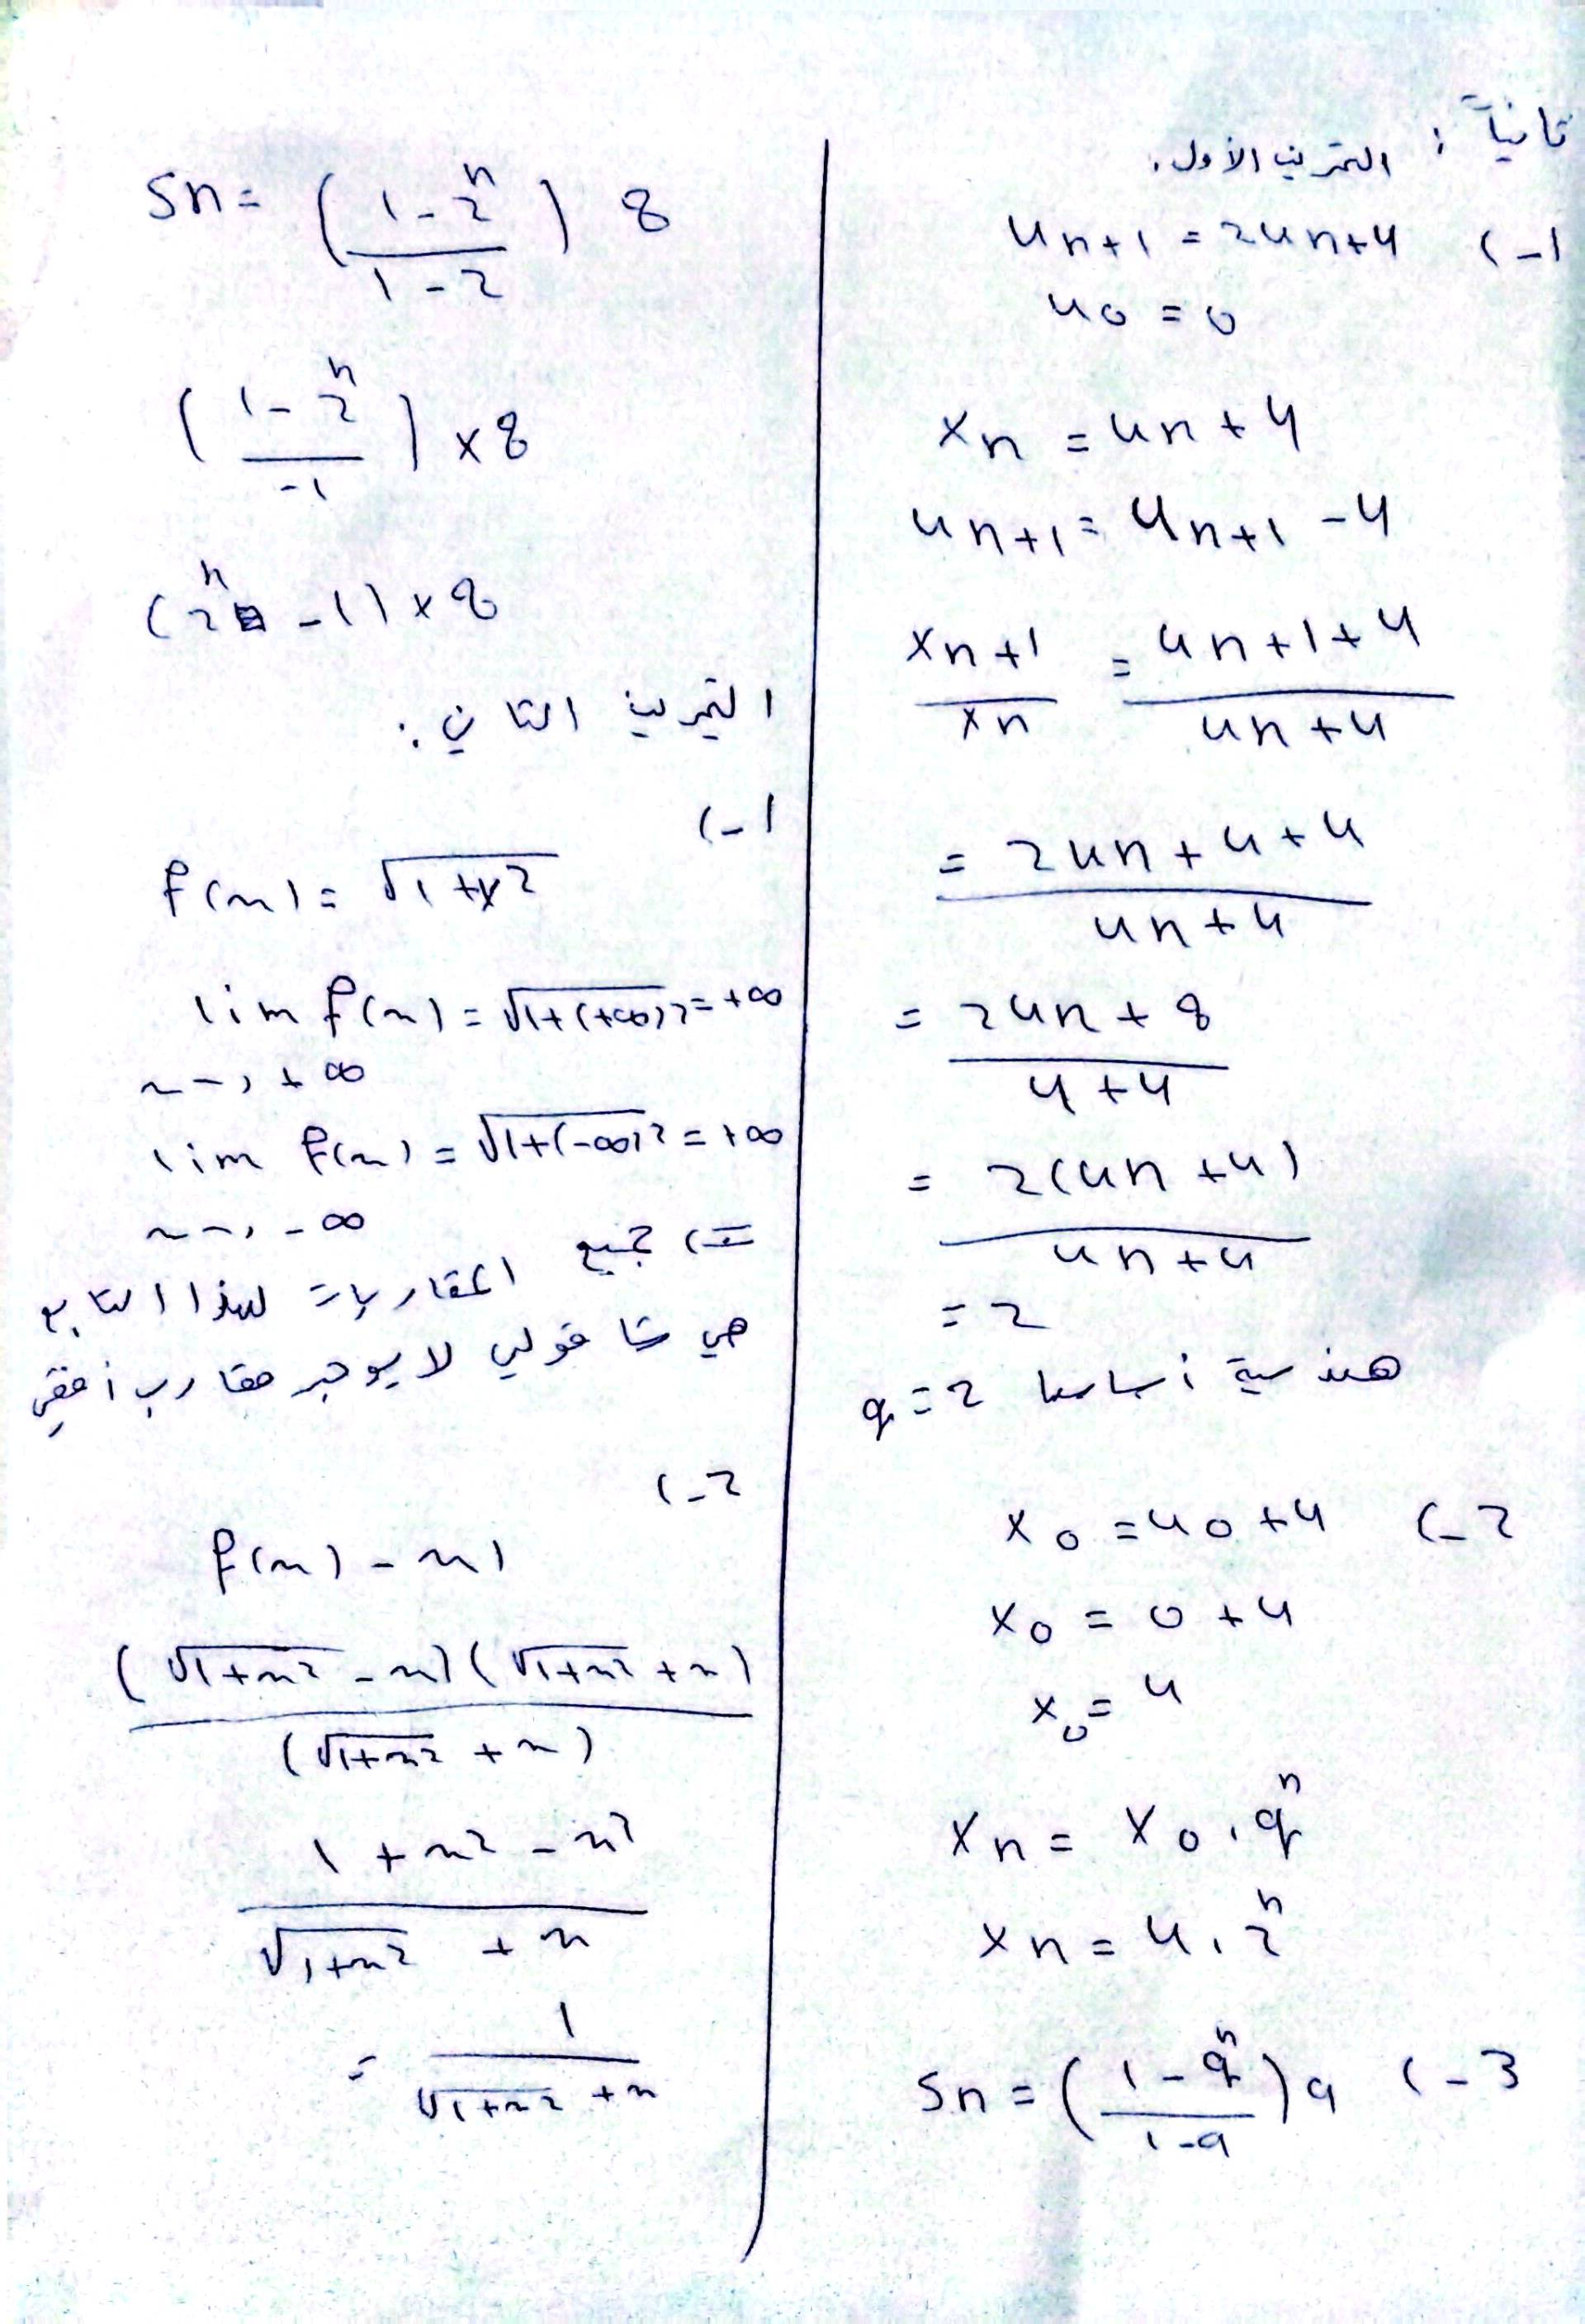 ثانياً : التمرين الأول .
1-) un+1 = 2un+4
u0 = 0
xn = un + 4
un+1 = un+1 - 4
xn+1 / xn = un+1+4 / un+4
= 2un+4+4 / un+4
= 2un+8 / 4+4
= 2(un+4) / un+4
= 2
هندسية أساسها q=2
2-) x0 = u0+4
x0 = 0+4
x0 = 4
xn = x0 . q^n
xn = 4 . 2^n
3-) Sn = (1-q^n / 1-q) a
Sn = (1-2^n / 1-2) 8
(1-2^n / -1) × 8
(2^n -1) × 8
التمرين الثاني :
1-)
f(x) = √1+x²
lim f(x) = √1+(+∞)² = +∞
x→+∞
lim f(x) = √1+(-∞)² = +∞
x→-∞
جميع المقاربات لهذا التابع
هي شاقولي لا يوجد مقارب أفقي
2-)
f(x) - x)
(√1+x² - x)(√1+x² + x) / (√1+x² + x)
1+x² - x² / √1+x² + x
= 1 / √1+x² + x